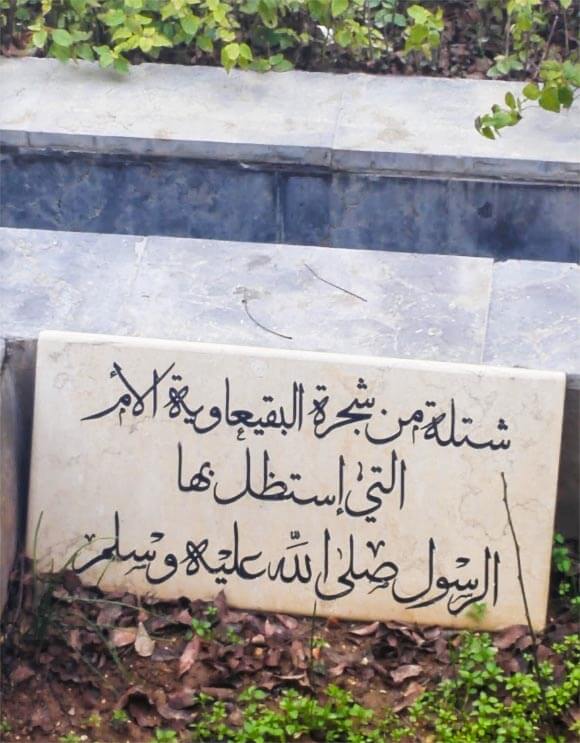 شتلة من شجرة البقيعاوية الأم
التي إستظل بها
الرسول صلى الله عليه وسلم